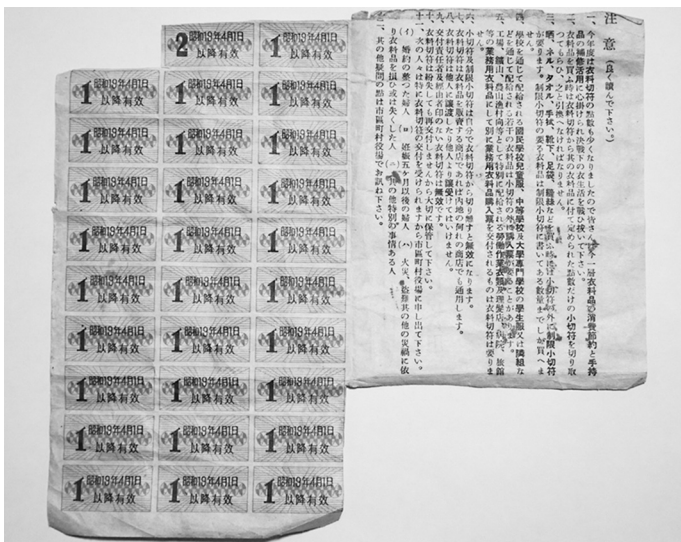 注意(良く讀んで下さい。)
一、今年度は衣料切符の點數も少くなりましたので皆さんは今一層衣料品の消費節約と手持
品の補修活用に心掛けられ決戰下の衣生活を戰ひ拔いて下さい。
二、衣料品を買ふ時は衣料切符から其の衣料品に付て定められた點數だけの小切符を切り取
つてもらひ、之と引換へなければなりません。
三、晒、ネル、タオル、手拭、靴下、足袋、縫絲などを買ふ時は小切符以外に制限小切符
が要ります。制限小切符の要る衣料品は制限小切符に書いてある數量までしか買へま
せん。
四、學校を通じて配給される國民學校兒童服、中等學校及大學專門學校の學生服又は隣組な
どを通じて配給される若干の衣料品は小切符の外購入票が要ることがあります。
五、工場、鑛山、農山漁村向等として特別に配給される勞働作業衣類及理髮店、病院、旅館
等の業務用衣料品にして別に業務用衣料品購入票を交付されるものは衣料切符は要りま
せん。
六、小切符及制限小切符は自分で衣料切符から切り離すと無效になります。
七、衣料切符は衣料品を販賣する商店であれば內地の何れの商店でも通用します。
八、衣料切符は他に讓渡したり他より讓受けてはいけません。
九、交付責任者及經由者印のない衣料切符は無效です。
十、衣料切符は紛失しても再交付しませんから大切に保管して下さい。
十一、次の人々は特に衣料切符の交付を受けられますから市區町村役場に申し出て下さい。
(イ)婚約の整つた婦人(ロ)姙娠五ヶ月以後の婦人(ハ)火災、盜難其の他の災禍に依
り衣料品を損ひ或は失くした人(ニ)其の他特別の事情ある人
十二、其の他疑問の點は市區町村役場でお訊ね下さい。
2 昭和19年4月1日以降有效 1 昭和19年4月1日以降有效
1 昭和19年4月1日以降有效 1 昭和19年4月1日以降有效 1 昭和19年4月1日以降有效
1 昭和19年4月1日以降有效 1 昭和19年4月1日以降有效 1 昭和19年4月1日以降有效
1 昭和19年4月1日以降有效 1 昭和19年4月1日以降有效 1 昭和19年4月1日以降有效
1 昭和19年4月1日以降有效 1 昭和19年4月1日以降有效 1 昭和19年4月1日以降有效
1 昭和19年4月1日以降有效 1 昭和19年4月1日以降有效 1 昭和19年4月1日以降有效
1 昭和19年4月1日以降有效 1 昭和19年4月1日以降有效 1 昭和19年4月1日以降有效
1 昭和19年4月1日以降有效 1 昭和19年4月1日以降有效 1 昭和19年4月1日以降有效
1 昭和19年4月1日以降有效 1 昭和19年4月1日以降有效 1 昭和19年4月1日以降有效
1 昭和19年4月1日以降有效 1 昭和19年4月1日以降有效 1 昭和19年4月1日以降有效